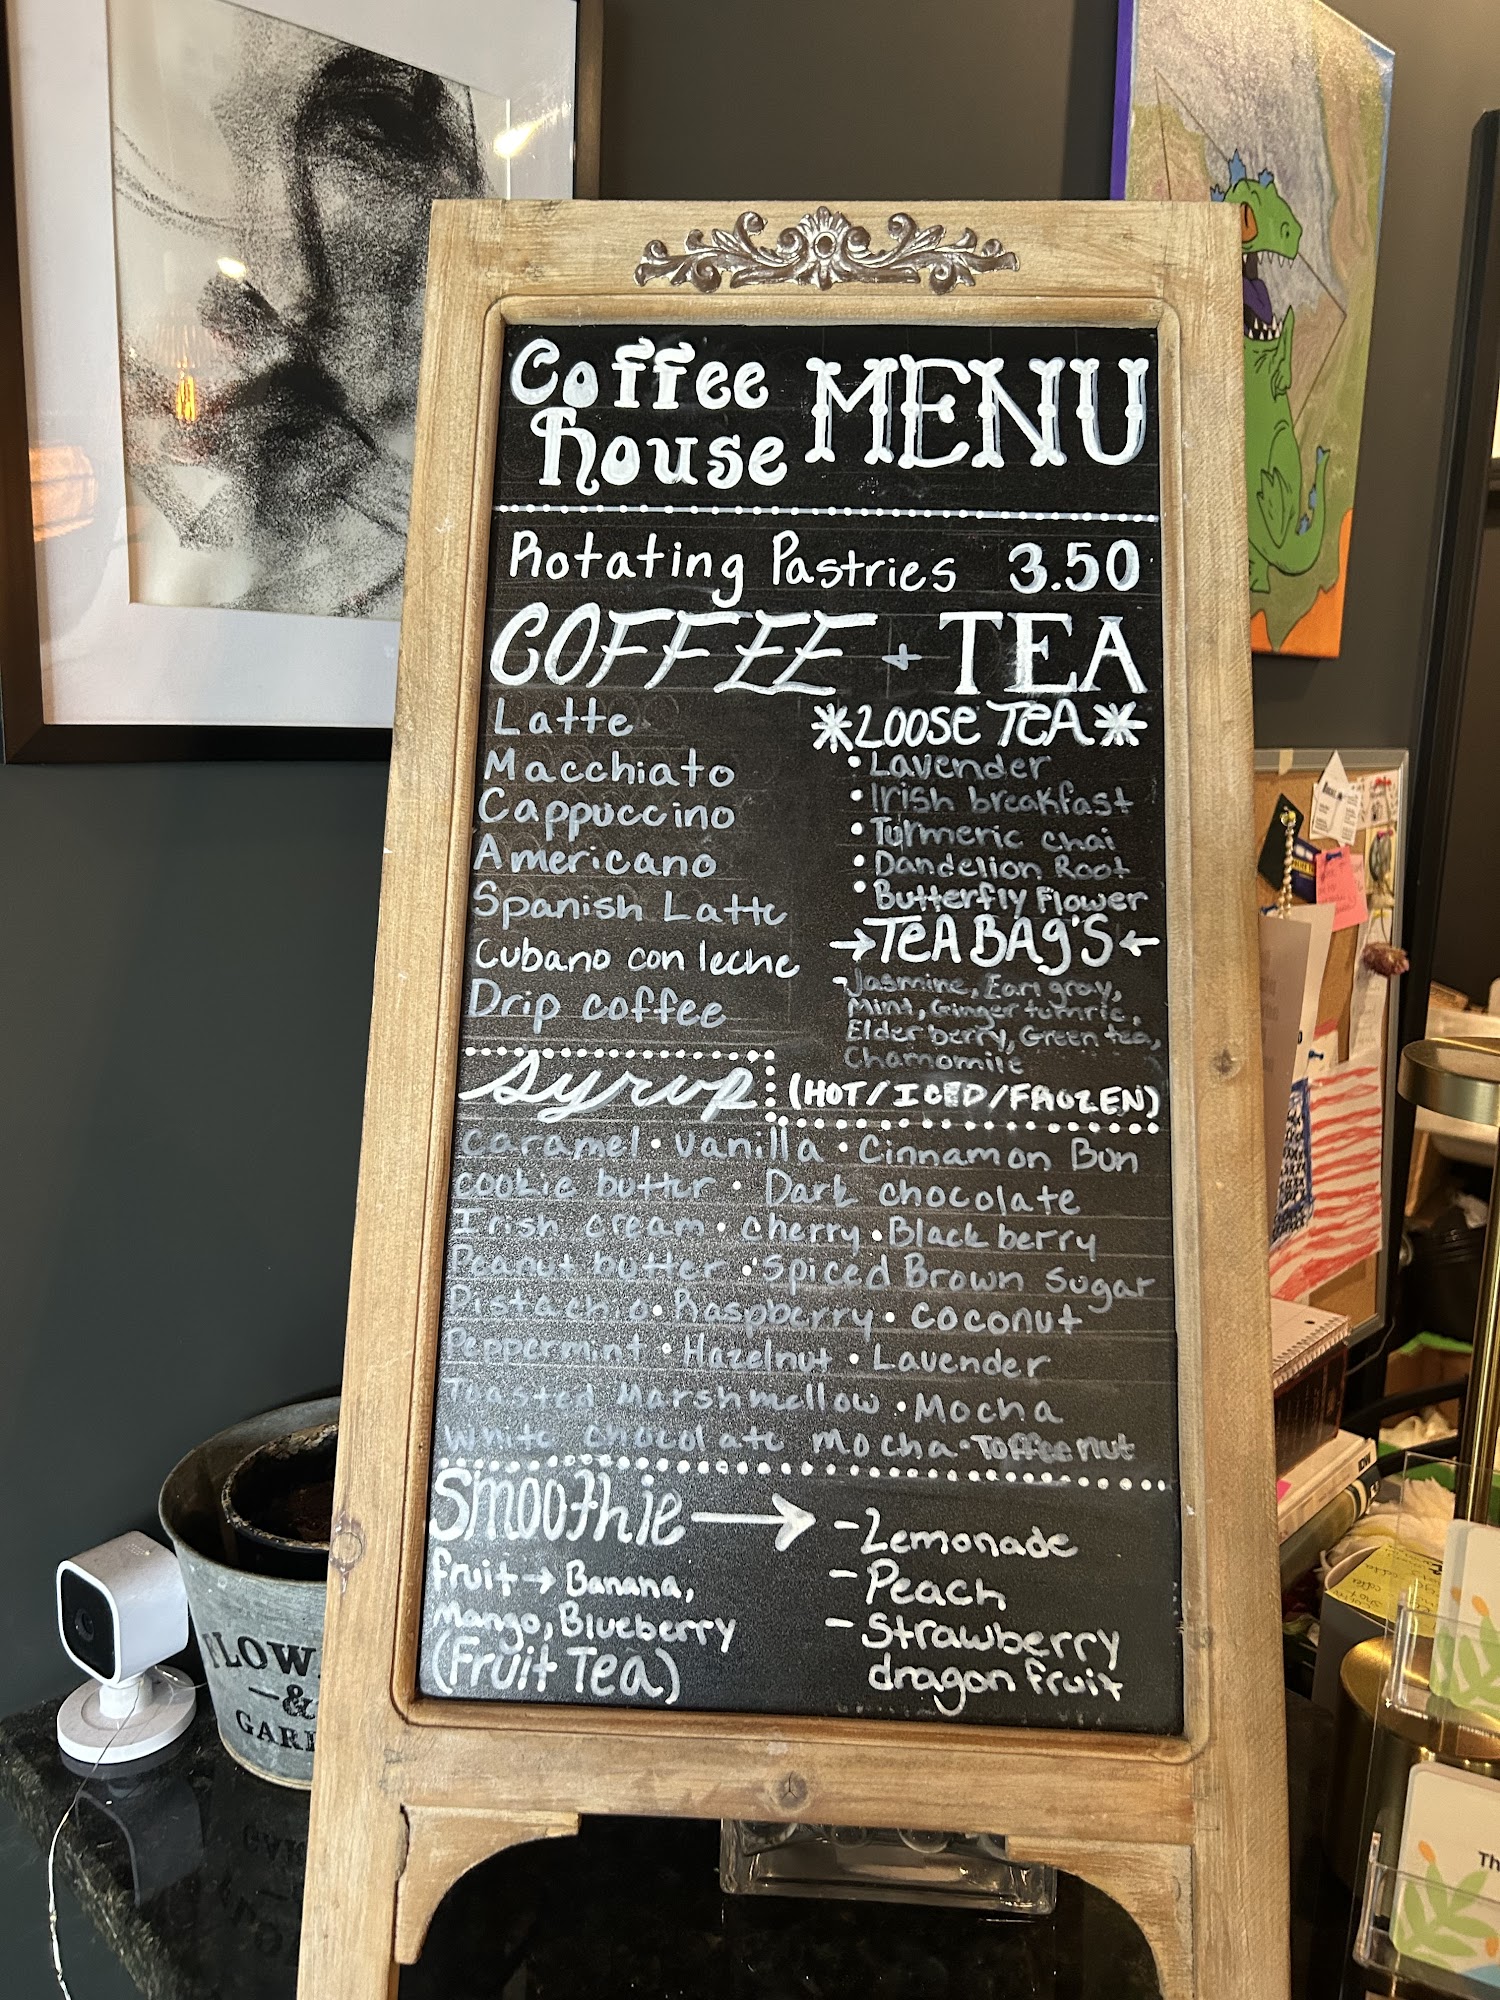 Coffee house MENU
Rotating Pastries 3.50
COFFEE + TEA
Latte
Macchiato
Cappuccino
Americano
Spanish Latte
Cubano con leche
Drip coffee
*LOOSE TEA*
• Lavender
• Irish breakfast
• Turmeric chai
• Dandelion Root
• Butterfly Flower
→TEA BAG'S←
-Jasmine, Earl gray,
Mint, Ginger tumric,
Elderberry, Green tea,
Chamomile
Syrup (HOT/ICED/FROZEN)
Caramel • Vanilla • Cinnamon Bun
cookie butter • Dark chocolate
Irish cream • Cherry • Blackberry
Peanut butter • Spiced Brown sugar
Pistachio • Raspberry • coconut
Peppermint • Hazelnut • Lavender
Toasted Marshmellow • Mocha
White chocolate mocha • Toffee nut
Smoothie →
fruit → Banana,
Mango, Blueberry
(Fruit Tea)
- Lemonade
- Peach
- Strawberry
dragon fruit
FLOW
-&
GAR
Th